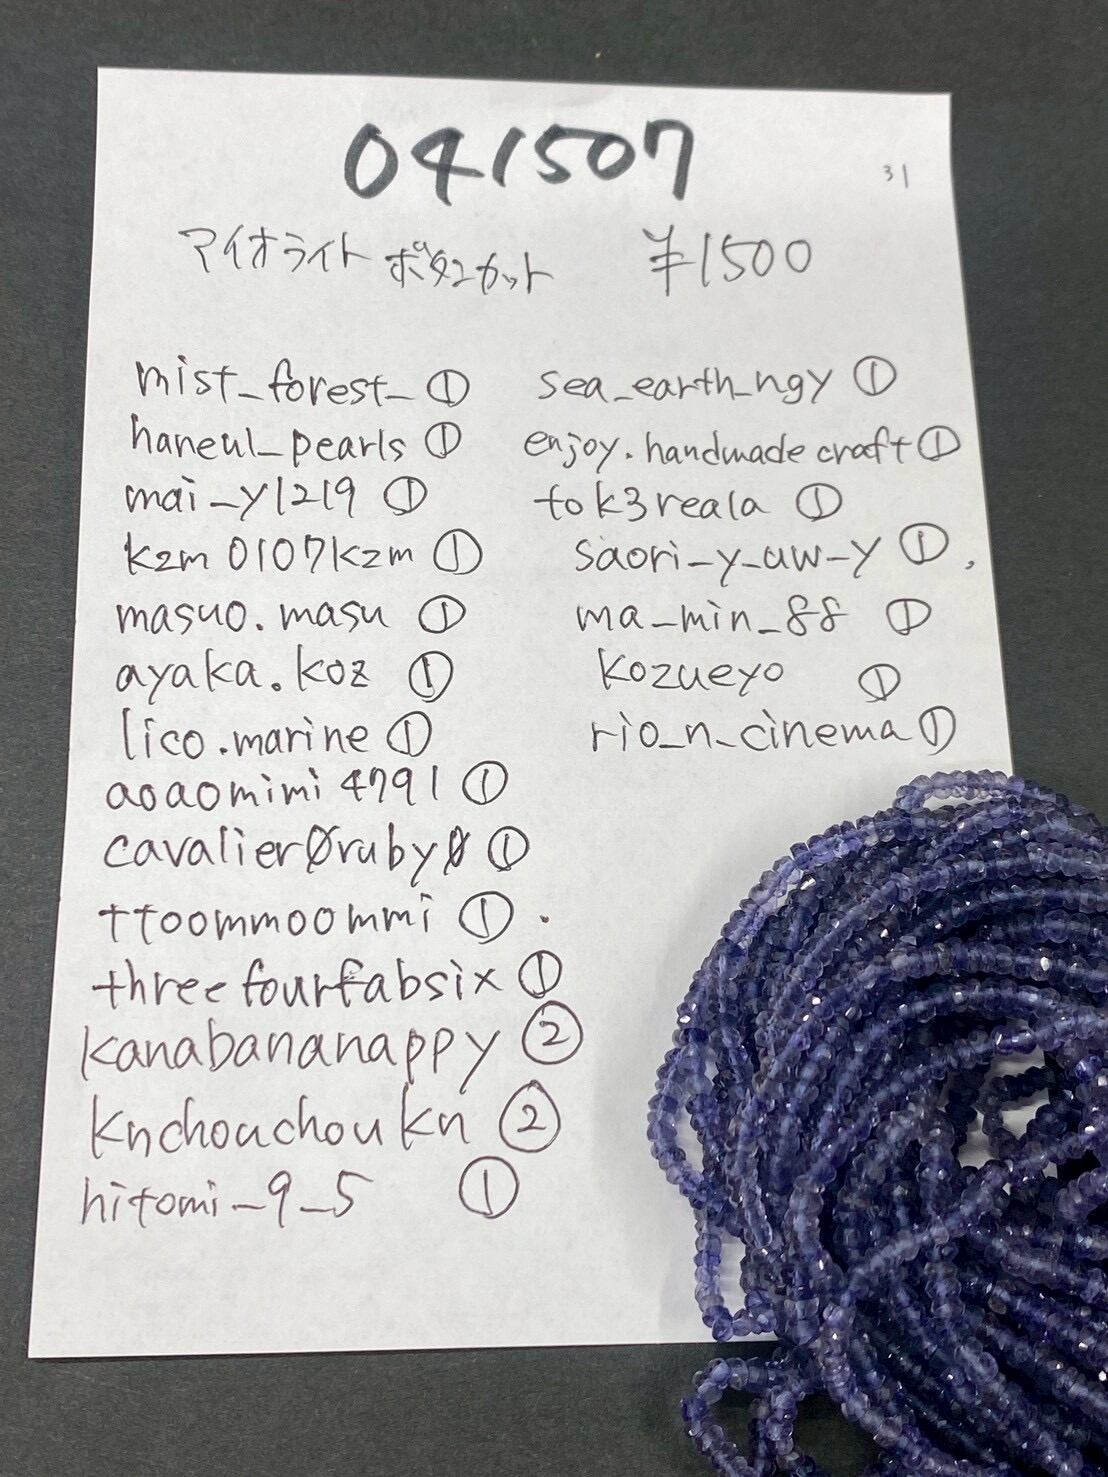 041507
31
マイオライト ボタンカット ¥1500
mist_forest_ ①
haneul_pearls ①
mai_y1219 ①
kzm0107kzm ①
masuo.masu ①
ayaka.koz ①
lico.marine ①
aoaomimi4791 ①
cavalier0ruby0 ①
ttoommoommi ①.
threefourfabsix ①
kanabananappy ②
knchouchoukn ②
hitomi_9_5 ①
sea_earth_ngy ①
enjoy.handmadecraft ①
tok3reala ①
saori_y_uw_y ①.
ma_min_88 ①
kozueyo ①
rio_n_cinema ①